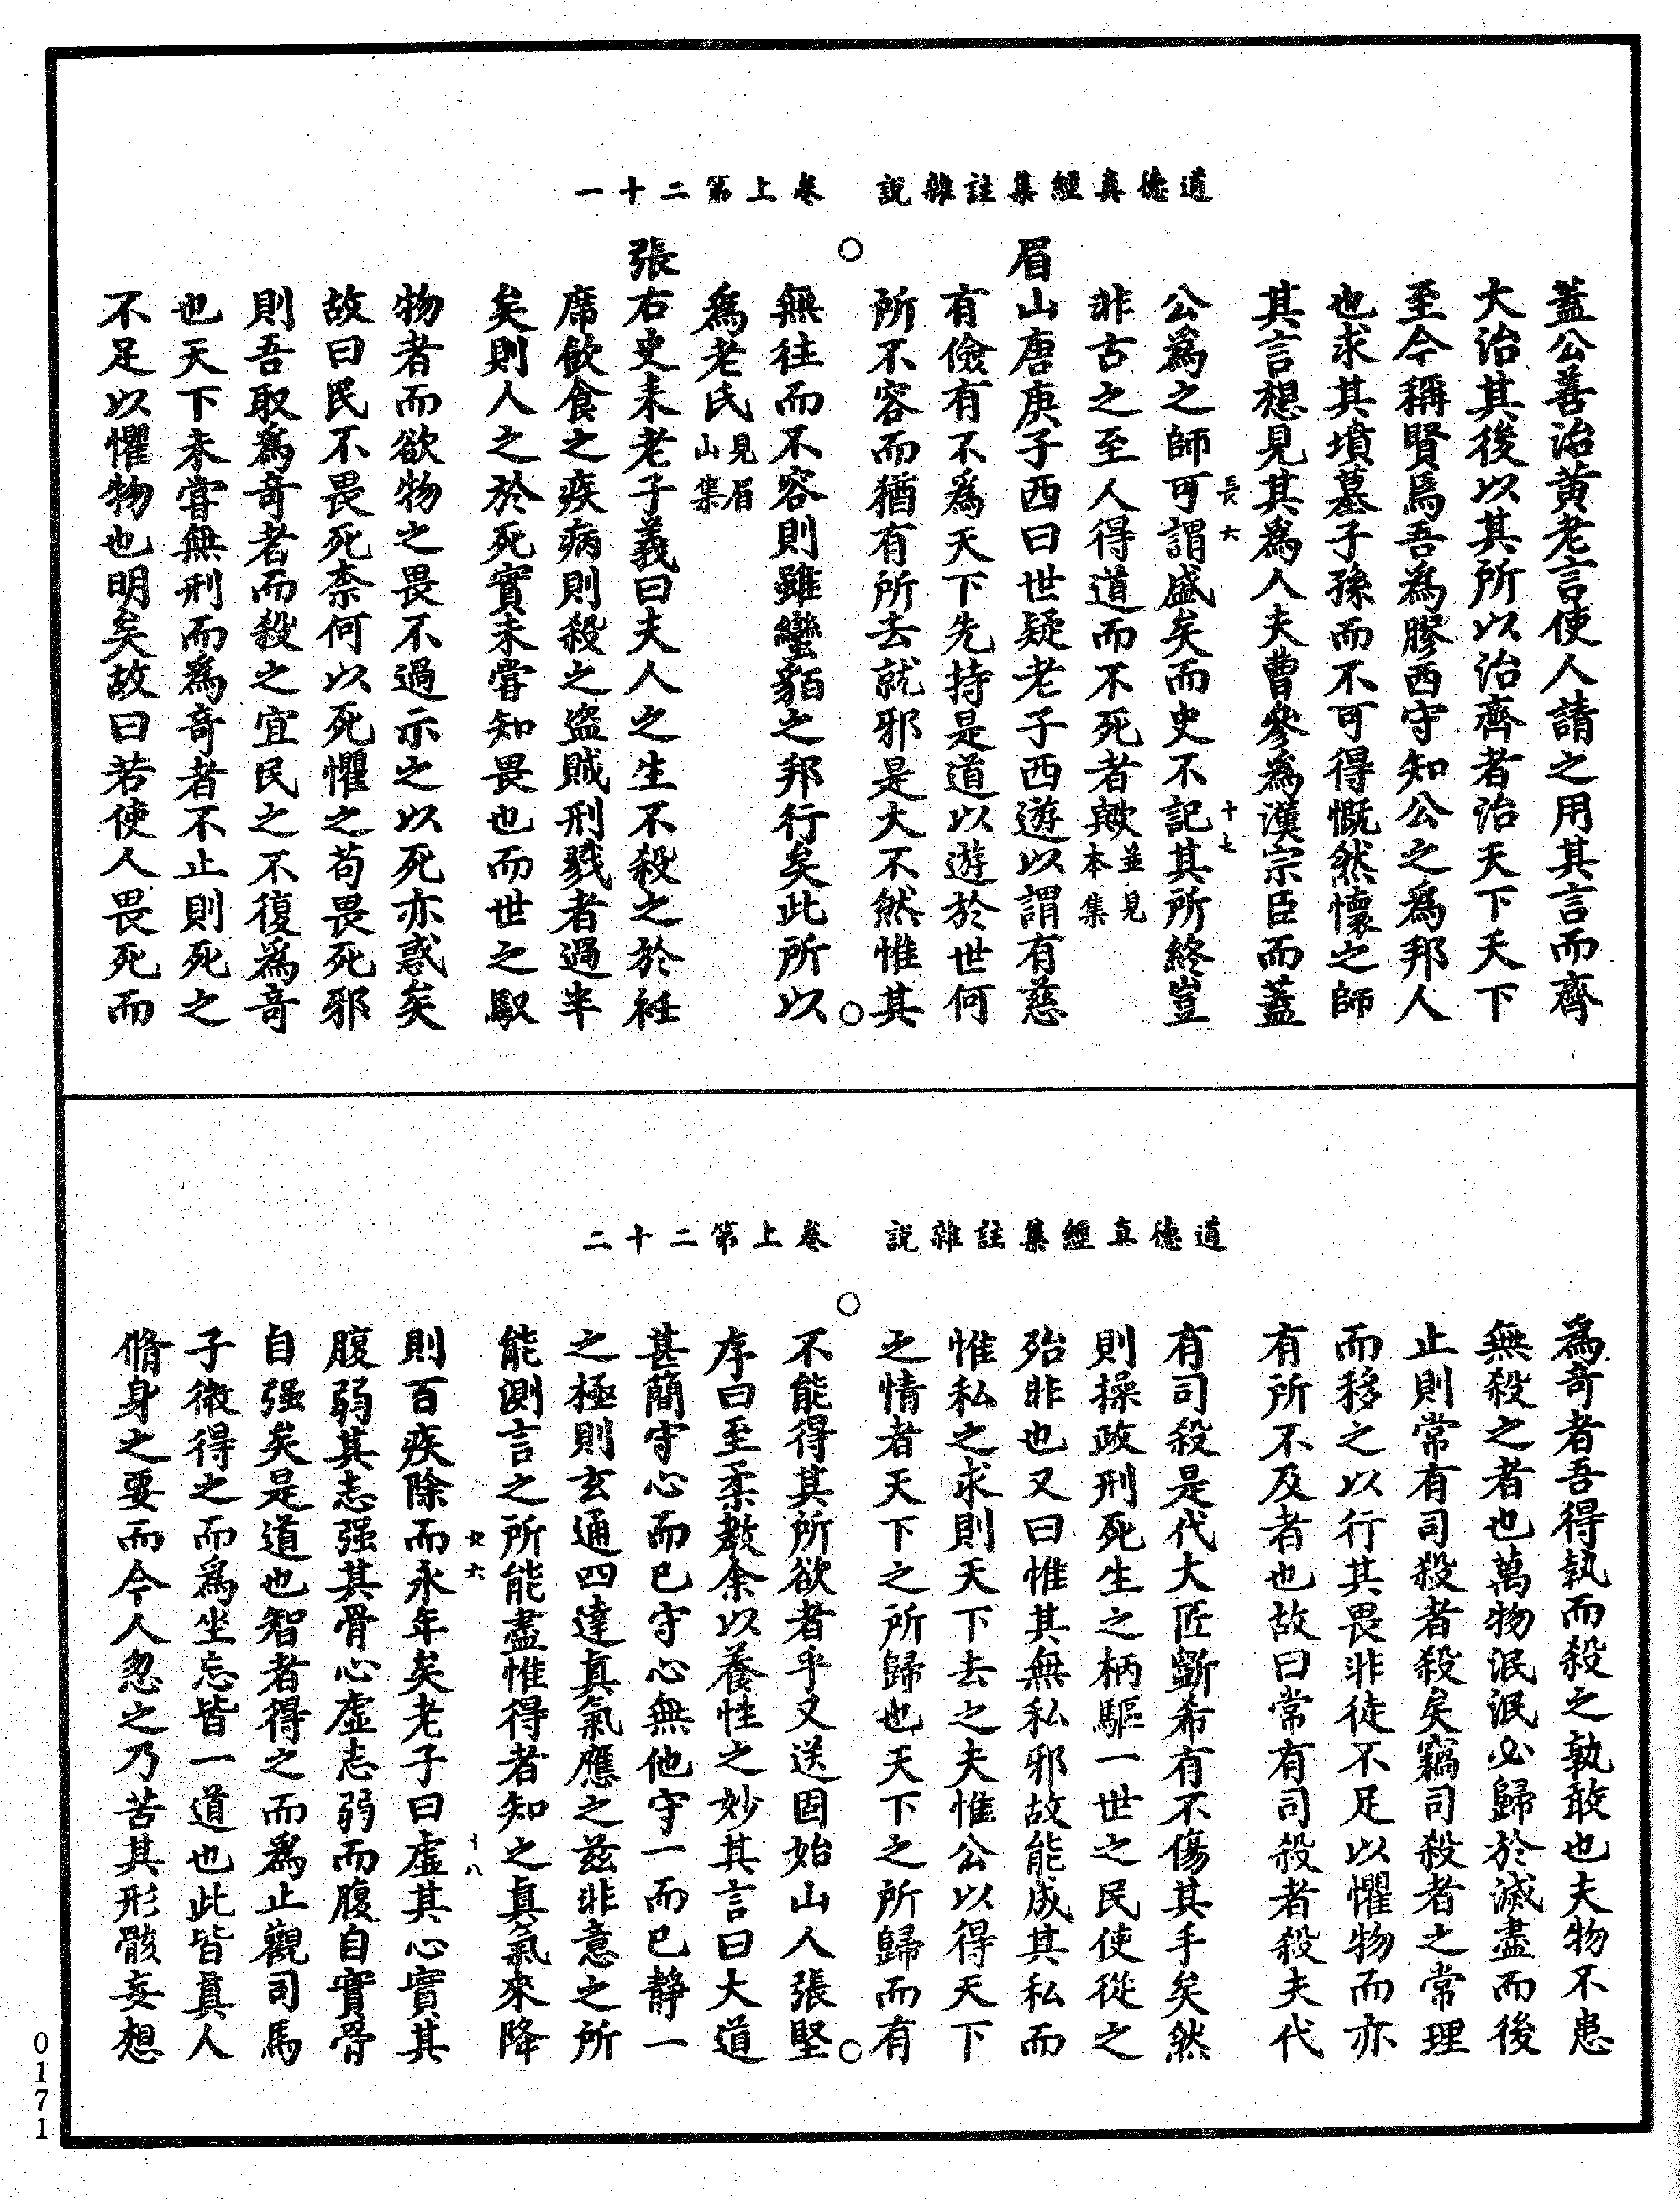 道德真經集註雜說　卷上第二十一
蓋公善治黃老言使人請之用其言而齊
大治其後以其所以治齊者治天下天下
至今稱賢焉吾為膠西守知公之為邦人
也求其墳墓子孫而不可得慨然懷之師
其言想見其為人夫曹參為漢宗臣而蓋
長六　十七
公為之師可謂盛矣而史不記其所終豈
非古之至人得道而不死者歟並見本集
眉山唐庚子西曰世疑老子西遊以謂有慈
有儉有不為天下先持是道以遊於世何
所不容而猶有所去就邪是大不然惟其
無往而不容則雖蠻貊之邦行矣此所以
為老氏見眉山集
張右史耒老子義曰夫人之生不殺之於衽
席飲食之疾病則殺之盜賊刑戮者過半
矣則人之於死實未嘗知畏也而世之馭
物者而欲物之畏不過示之以死亦惑矣
故曰民不畏死柰何以死懼之苟畏死邪
則吾取為奇者而殺之宜民之不復為奇
也天下未嘗無刑而為奇者不止則死之
不足以懼物也明矣故曰若使人畏死而
道德真經集註雜說　卷上第二十二
為奇者吾得執而殺之孰敢也夫物不患
無殺之者也萬物泯泯必歸於滅盡而後
止則常有司殺者殺矣竊司殺者之常理
而移之以行其畏非徒不足以懼物而亦
有所不及者也故曰常有司殺者殺夫代
有司殺是代大匠斲希有不傷其手矣然
則操政刑死生之柄驅一世之民使從之
殆非也又曰惟其無私邪故能成其私而
惟私之求則天下去之夫惟公以得天下
之情者天下之所歸也天下之所歸而有
不能得其所欲者乎又送固始山人張堅
序曰至柔教余以養性之妙其言曰大道
甚簡守心而已守心無他守一而已靜一
之極則玄通四達真氣應之茲非意之所
能測言之所能盡惟得者知之真氣來降
六　十八
則百疾除而永年矣老子曰虛其心實其
腹弱其志强其骨心虛志弱而腹自實骨
自强矣是道也智者得之而為止觀司馬
子微得之而為坐忘皆一道也此皆真人
脩身之要而今人忽之乃苦其形骸妄想
0171